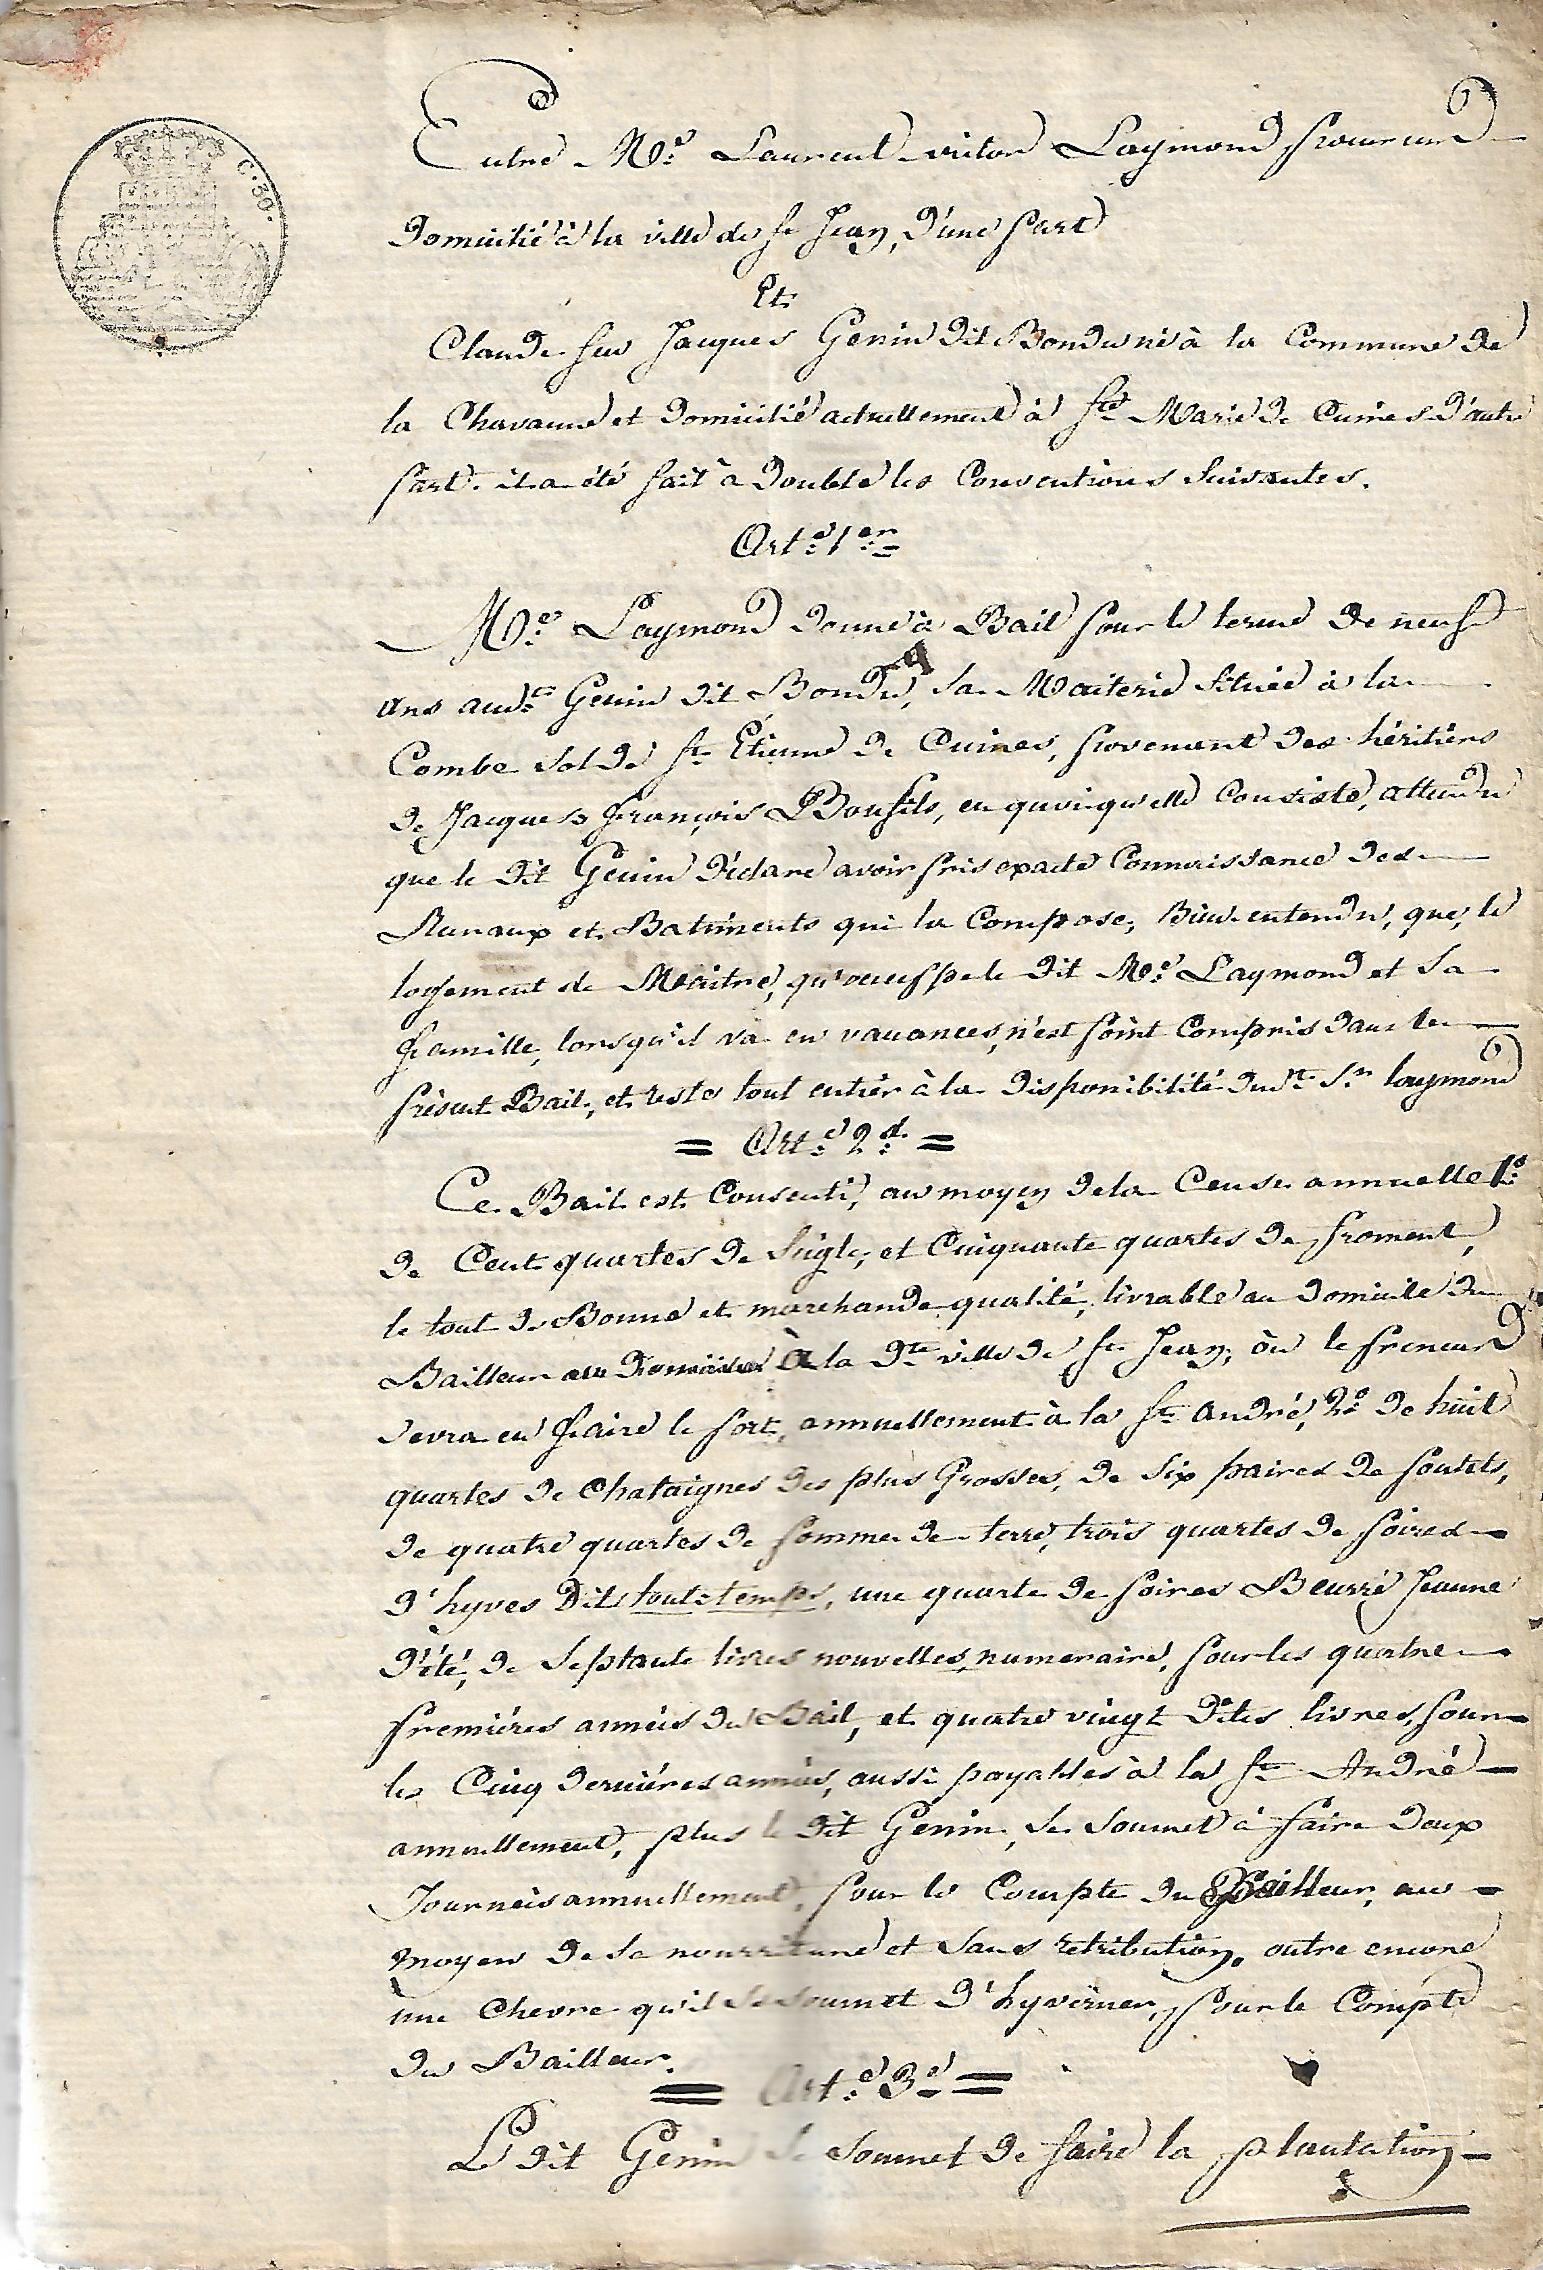 C. 30.
Entre Me. Laurent victor Laymond procureur
Domicilié à la ville de St Jean, d'une part
Et
Claude feu Jacques Genin dit Bondu né à la Commune de
la Chavanne et domicilié actuellement à Ste Marie de Cuines d'autre
part. il a été fait à double les Conventions suivantes.
Art.e 1er
Me. Laymond donne à Bail pour le terme de neuf
ans audt Genin dit Bondu, sa Maiterie située à la
Combe sol de St Etienne de Cuines, provenant des héritiers
de Jacques françois Bonfils, en quoi qu'elle Consiste, attendu
que le dit Genin déclare avoir pris exacte Connaissance des
Ruraux et Batiments qui la Compose, Bien entendu, que, le
logement de Maitre, qu'occuppe le dit Me. Laymond et sa
famille, lorsqu'il va en vacances, n'est point Compris dans le
présent Bail, et reste tout entier à la disponibilité dudt Sr laymond
= Art.e 2d. =
Ce Bail est Consenti, au moyen de la Cense annuelle 1°
de Cent quartes de Seigle, et Cinquante quartes de froment,
le tout de Bonne et marchande qualité, livrable au domicile du
Bailleur à la dte ville de St Jean, où le preneur
devra en faire le port, annuellement à la St André, 2° de huit
quartes de Chataignes des plus Grosses, de Six paires de poulets,
de quatre quartes de pomme de terre, trois quartes de poires
d'hyves dit tout-temps, une quarte de poires Beurré Jeaune
d'été, de Septante livres nouvelles, numeraire, pour les quatre
premières années du Bail, et quatre vingt dites livres, pour
les Cinq dernières années, aussi payables à la St André
annuellement, plus le dit Genin, se soumet à faire deux
Journéés annuellement, pour le Compte du Bailleur, au
moyen de sa nourriture et sans retribution, outre encore
une Chevre qu'il se soumet d'hyverner, pour le Compte
du Bailleur.
= Art.e 3e =
Le dit Genin se soumet de faire la plantation